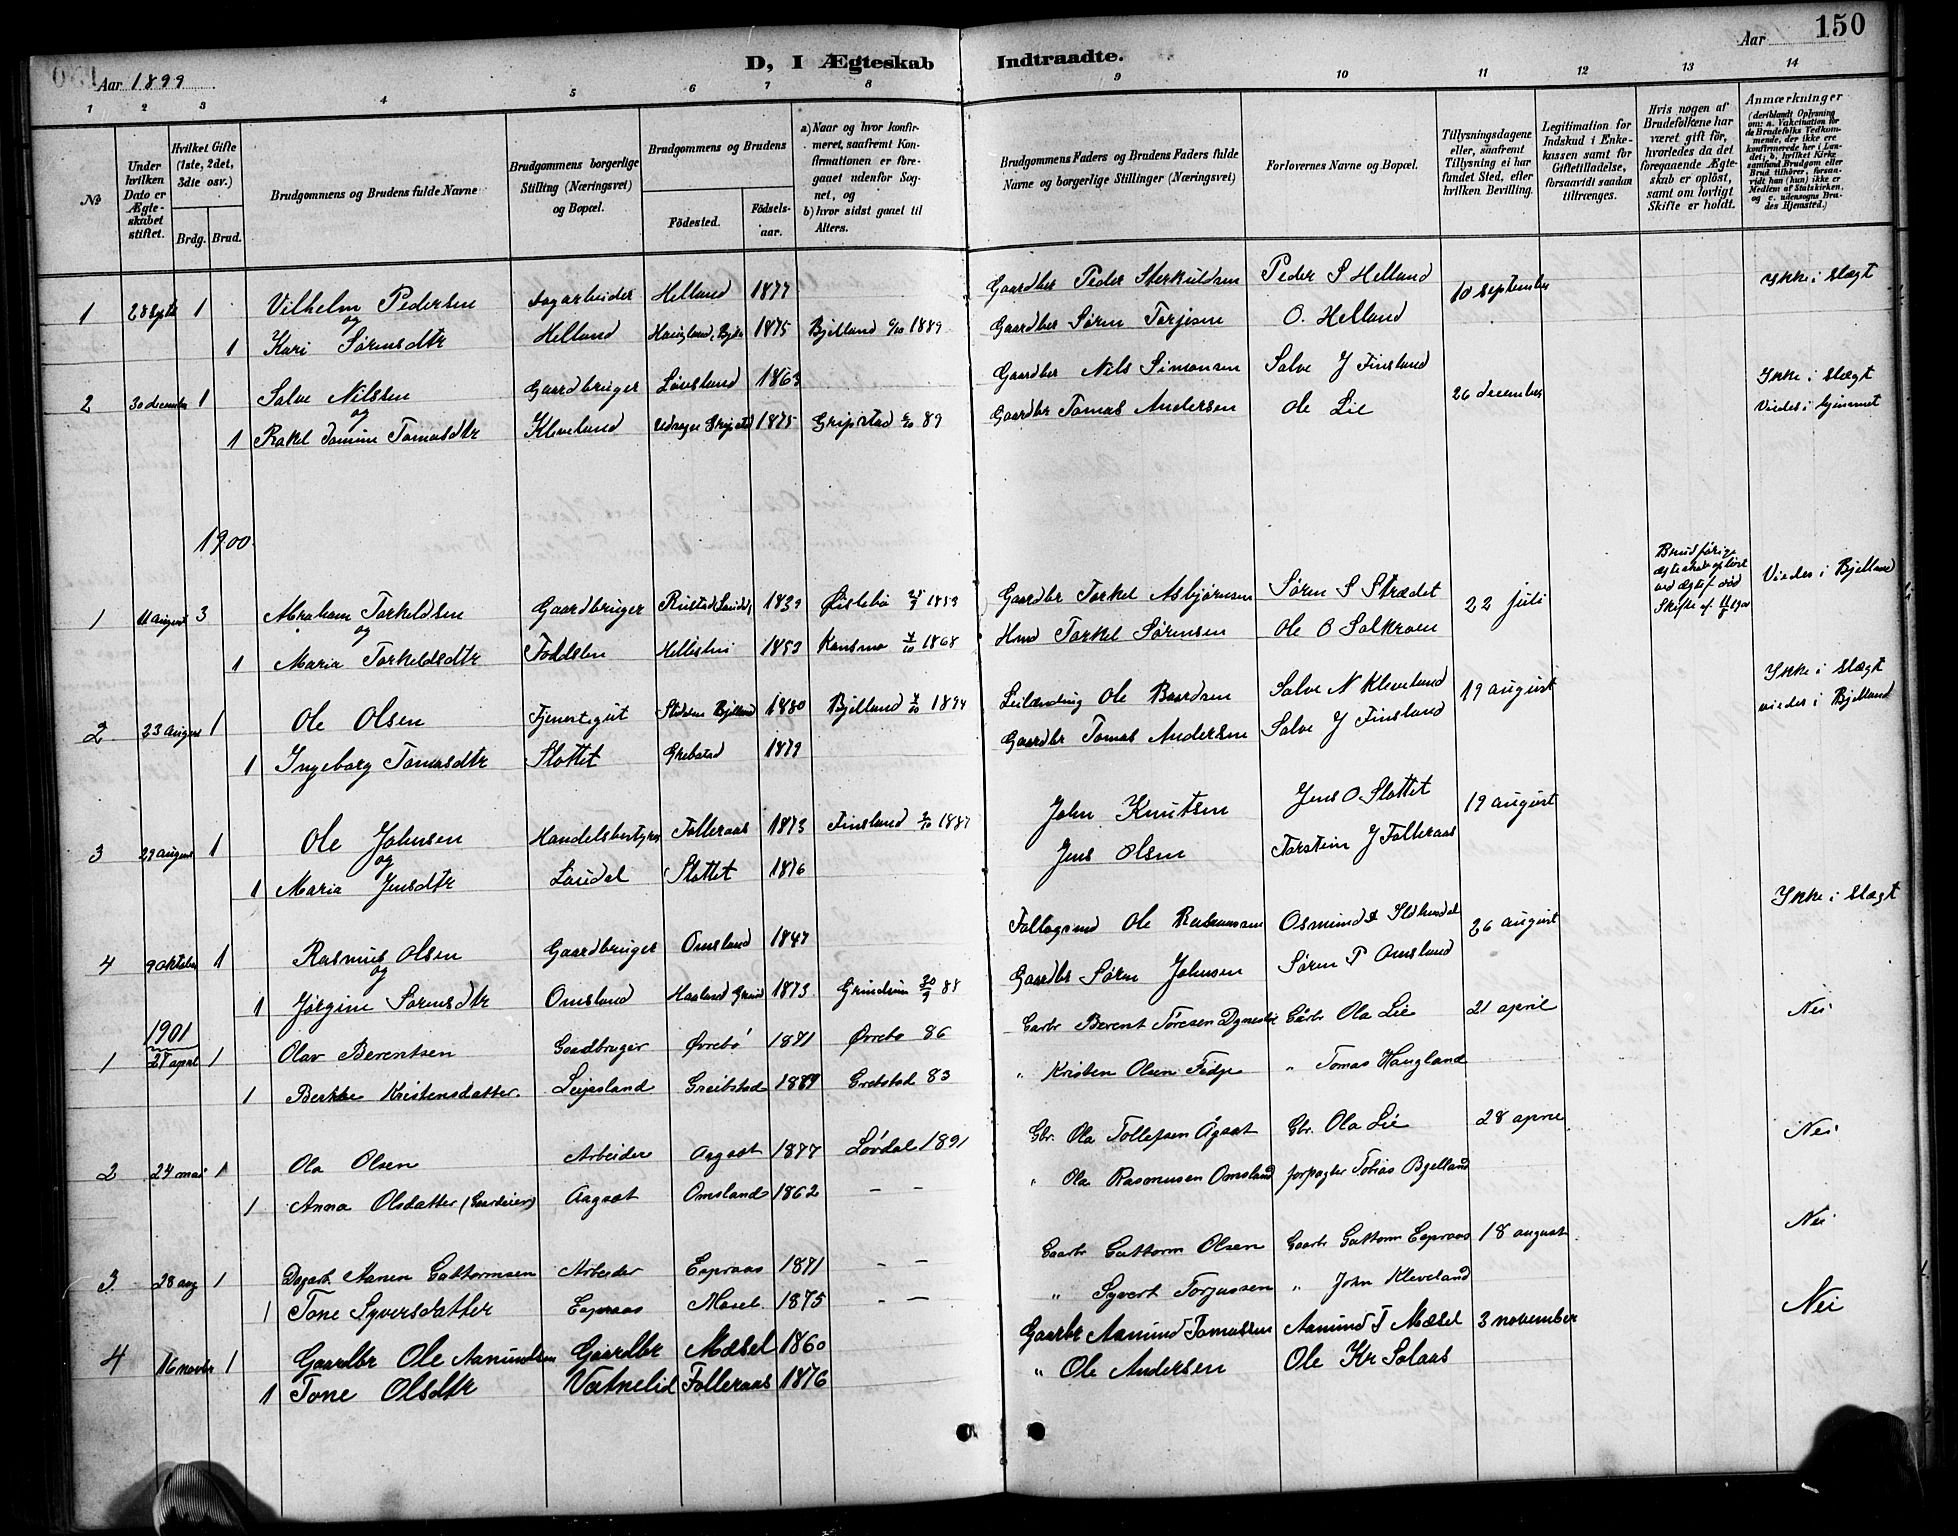 150
D, I Ægteskab Indtraadte.
Aar 1899
Aar
1 2 3 4 5 6 7 8 9 10 11 12 13 14
No
Under hvilken Dato er Ægteskabet stiftet.
Hvilket Gifte (1ste, 2det, 3die osv.)
Brdg. Brud.
Brudgommens og Brudens fulde Navne
Brudgommens borgerlige Stilling (Næringsvei) og Bopæl.
Brudgommens og Brudens
Födested.
Födselsaar.
a) Naar og hvor konfirmeret, saafremt Konfirmationen er foregaaet udenfor Sognet, og b) hvor sidst gaaet til Alters.
Brudgommens Faders og Brudens Faders fulde Navne og borgerlige Stillinger (Næringsvei)
Forlovernes Navne og Bopæl.
Tillysningsdagene eller, saafremt Tillysning ei har fundet Sted, efter hvilken Bevilling.
Legitimation for Indskud i Enkekassen samt for Giftetilladelse, forsaavidt saadan tiltrænges.
Hvis nogen af Brudefolkene har været gift för, hvorledes da det foregaaende Ægteskab er oplöst, samt om lovligt Skifte er holdt.
Anmærkninger (deriblandt Oplysning om: a. Vakcination for de Brudefolks Vedkommende, der ikke ere konfirmerede her i Landet; b. hvilket Kirkesamfund Brudgom eller Brud tilhörer, forsaavidt han (hun) ikke er Medlem af Statskirken, og c. udensogns Brudes Hjemsted.)
1 28 septr 1 Vilhelm Pedersen Helland 1877 Gaardbr Peder Peder S Helland 10 september Ikke i Slægt
og
1 Kari Sørensdtr Helland 1875 Bjelland 1889 Gaardbr Søren Torjesen O. Helland
2 30 december 1 Salve Nilsen Gaardbruger 1863 Gaardbr Nils Simonsen Salve J Finsland 26 december Ikke i Slægt
og
1 Rakel Tomasdtr Kleveland 1875 Gripstad 89 Gaardbr Tomas Andersen Ole Lie Viedes i hjemmet
1900
1 11 august 3 Abraham Torkeldsen Gaardbruger 1839 Øislebø 1853 Gaardbr Torkel Asbjørnsen Søren S Strædet 22 juli Viedes i Bjelland
og
1 Maria Torkeldsdtr Foddsland 1853 Konsmo 1868 Hmd Torkel Sørensen Ole O
2 23 august 1 Ole Olsen Tjenestegut Bjelland 1880 Bjelland 1894 Leilænding Ole Baardsen Salve N Kleveland 19 august Ikke i Slægt
viedes i Bjelland
1 Ingeborg Tomasdtr Slottet Grebstad 1879 Gaardbr Tomas Andersen Salve J Finsland
3 29 august 1 Ole Johnsen Handelsbestyrer Folleraas 1873 Finsland 1887 John Knutsen Jens O Slottet 19 august
og
1 Maria Jensdtr Laudal Slottet 1876 Jens Olsen Torstein J Folleraas
4 9 oktober 1 Rasmus Olsen Gaardbruger Omsland 1847 Ole Rasmussen Osmund 26 august Ikke i Slægt
og
1 Jørgine Sørensdtr Omsland 1873 Grindum 30/9 88 Gaardbr Søren Johnsen Søren P Omsland
1901
1 27 april 1 Olav Berentsen Gaardbruger Øvrebø 1871 Øvrebø 86 Gaardbr Berent Tøresen Gårbr Ola Lie 21 april Nei
1 Kristensdatter Leiesland Greibstad 1889 Grebstad 83 " Kristen Olsen " Tomas Haugland
2 24 mai 1 Ola Olsen Arbeider Aagsæt 1877 Løvdal 1891 Gbr. Ola Tollefsen Ågsæt Gbr. Ola Lie 28 april Nei
1 Anna Olsdatter Aagsæt Omsland 1862 – – " Ola Rasmussen Omsland forpagter Tobias Bjelland
3 28 aug 1 Aanen Guttormsen Arbeider Espraas 1871 – – Gaarbr Guttorm Olsen Gaarbr Guttorm Espraas 18 august Nei
1 Tone Syversdatter Espraas Mæsel 1875 – – " Syvert Torjussen " John Kleveland
4 16 novbr 1 Gaardbr Ole Aanundsen Gaardbr Mæsel 1860 Gaarbr Aanund Tomassen Aanund T Mæsel 3 november Nei
1 Tone Olsdtr Vatnelid Folleraas 1876 " Ole Andersen Ole Kr Solaas